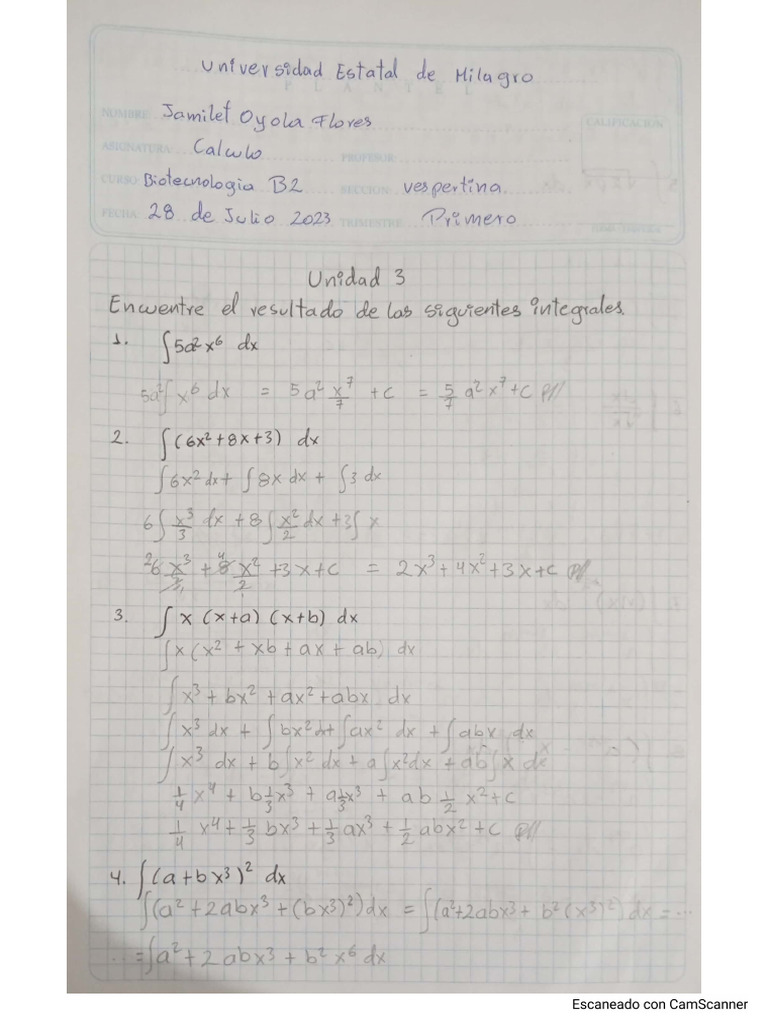 Universidad Estatal de Milagro
PLANTEL
NOMBRE: Jamilet Oyola Flores
CALIFICACION
ASIGNATURA: Calculo PROFESOR:
CURSO: Biotecnologia B2 SECCION: vespertina.
FECHA: 28 de Julio 2023 TRIMESTRE: Primero
Unidad 3
Encuentre el resultado de las siguientes integrales.
1. ∫5a²x⁶ dx
5a²∫x⁶ dx = 5a² x⁷/7 + c = 5/7 a² x⁷ + c
2. ∫(6x²+8x+3) dx
∫6x² dx + ∫8x dx + ∫3 dx
6∫x³/3 dx + 8∫x²/2 dx + 3∫x
²6x³/3₁ + ⁴8x²/2₁ + 3x + c = 2x³ + 4x² + 3x + c
3. ∫x (x+a) (x+b) dx
∫x(x² + xb + ax + ab) dx
∫x³ + bx² + ax² + abx dx
∫x³ dx + ∫bx² dx + ∫ax² dx + ∫abx dx
∫x³ dx + b∫x² dx + a∫x² dx + ab∫x dx
1/4 x⁴ + b 1/3 x³ + a 1/3 x³ + ab 1/2 x² + c
1/4 x⁴ + 1/3 bx³ + 1/3 ax³ + 1/2 abx² + c
4. ∫(a+bx³)² dx
∫(a² + 2abx³ + (bx³)²) dx = ∫(a² + 2abx³ + b²(x³)²) dx = ...
... = ∫a² + 2abx³ + b²x⁶ dx
Escaneado con CamScanner